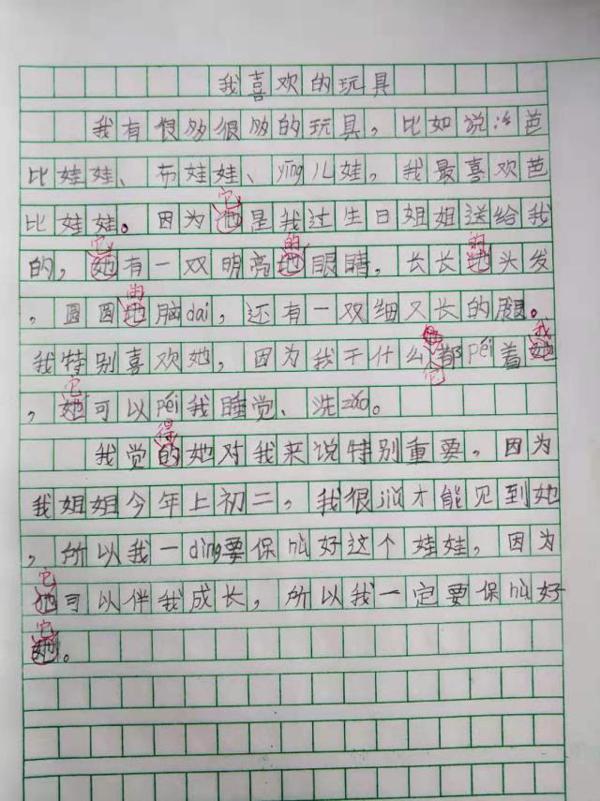 我喜欢的玩具
我有很多很多的玩具，比如说洋芭
比娃娃、布娃娃、yīng儿娃，我最喜欢芭
它
比娃娃。因为她是我过生日姐姐送给我
它 的 的
的，她有一双明亮地眼睛，长长地头发
的
，圆圆地脑dai，还有一双细又长的腿。
我
我特别喜欢她，因为我干什么都péi着她
它 它
，她可以péi我睡觉、洗zǎo。
得
我觉的她对我来说特别重要，因为
我姐姐今年上初二，我很jiǔ才能见到她
，所以我一dìng要保hù好这个娃娃，因为
它
她可以伴我成长，所以我一定要保hù好
它
她。